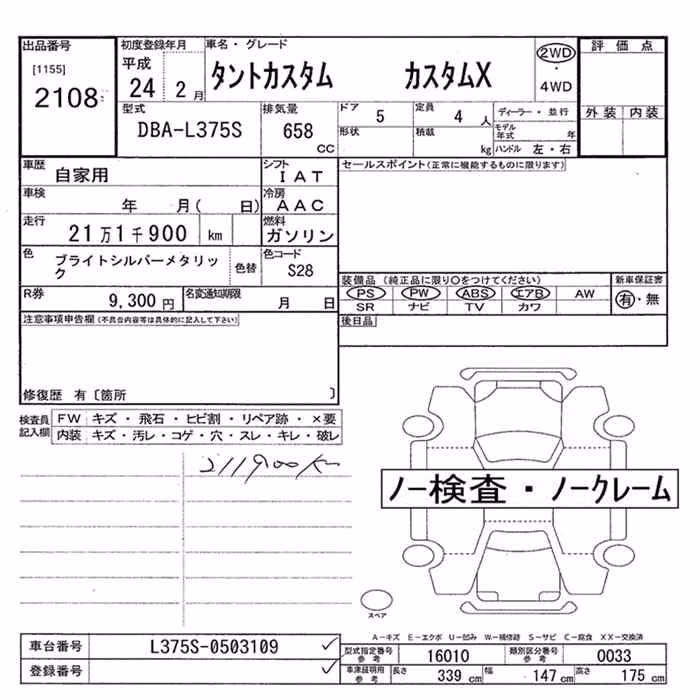 出品番号
[1155]
2108
初度登録年月
平成
24 2 月
車名・グレード
タントカスタム カスタムX
2WD
・
4WD
評価点
外装 内装
型式
DBA-L375S
排気量
658
CC
ドア 5
形状
定員 4 人
積載 kg
ディーラー・並行
モデル年式 年
ハンドル 左・右
車歴
自家用
シフト
IAT
セールスポイント(正常に機能するものに限ります)
車検
年 月( 日)
冷房
AAC
走行
21万1千900 km
燃料
ガソリン
色
ブライトシルバーメタリック
色替
色コード
S28
R券
9,300円
名変通知期限
月 日
装備品(純正品に限り○をつけてください)
新車保証書
PS PW ABS エアB AW
有・無
SR ナビ TV カワ
後日品
注意事項申告欄(不具合内容等は具体的に記入して下さい)
修復歴 有〔箇所 〕
検査員記入欄
FW キズ・飛石・ヒビ割・リペア跡・×要
内装 キズ・汚レ・コゲ・穴・スレ・キレ・破レ
211900km
ノー検査・ノークレーム
スペア
A-キズ E-エクボ U-凹み W-補修跡 S-サビ C-腐食 XX-交換済
車台番号 L375S-0503109 ✓
登録番号 ✓
型式指定番号参考 16010
類別区分番号参考 0033
車庫証明用参考 長さ 339 cm 幅 147 cm 高さ 175 cm